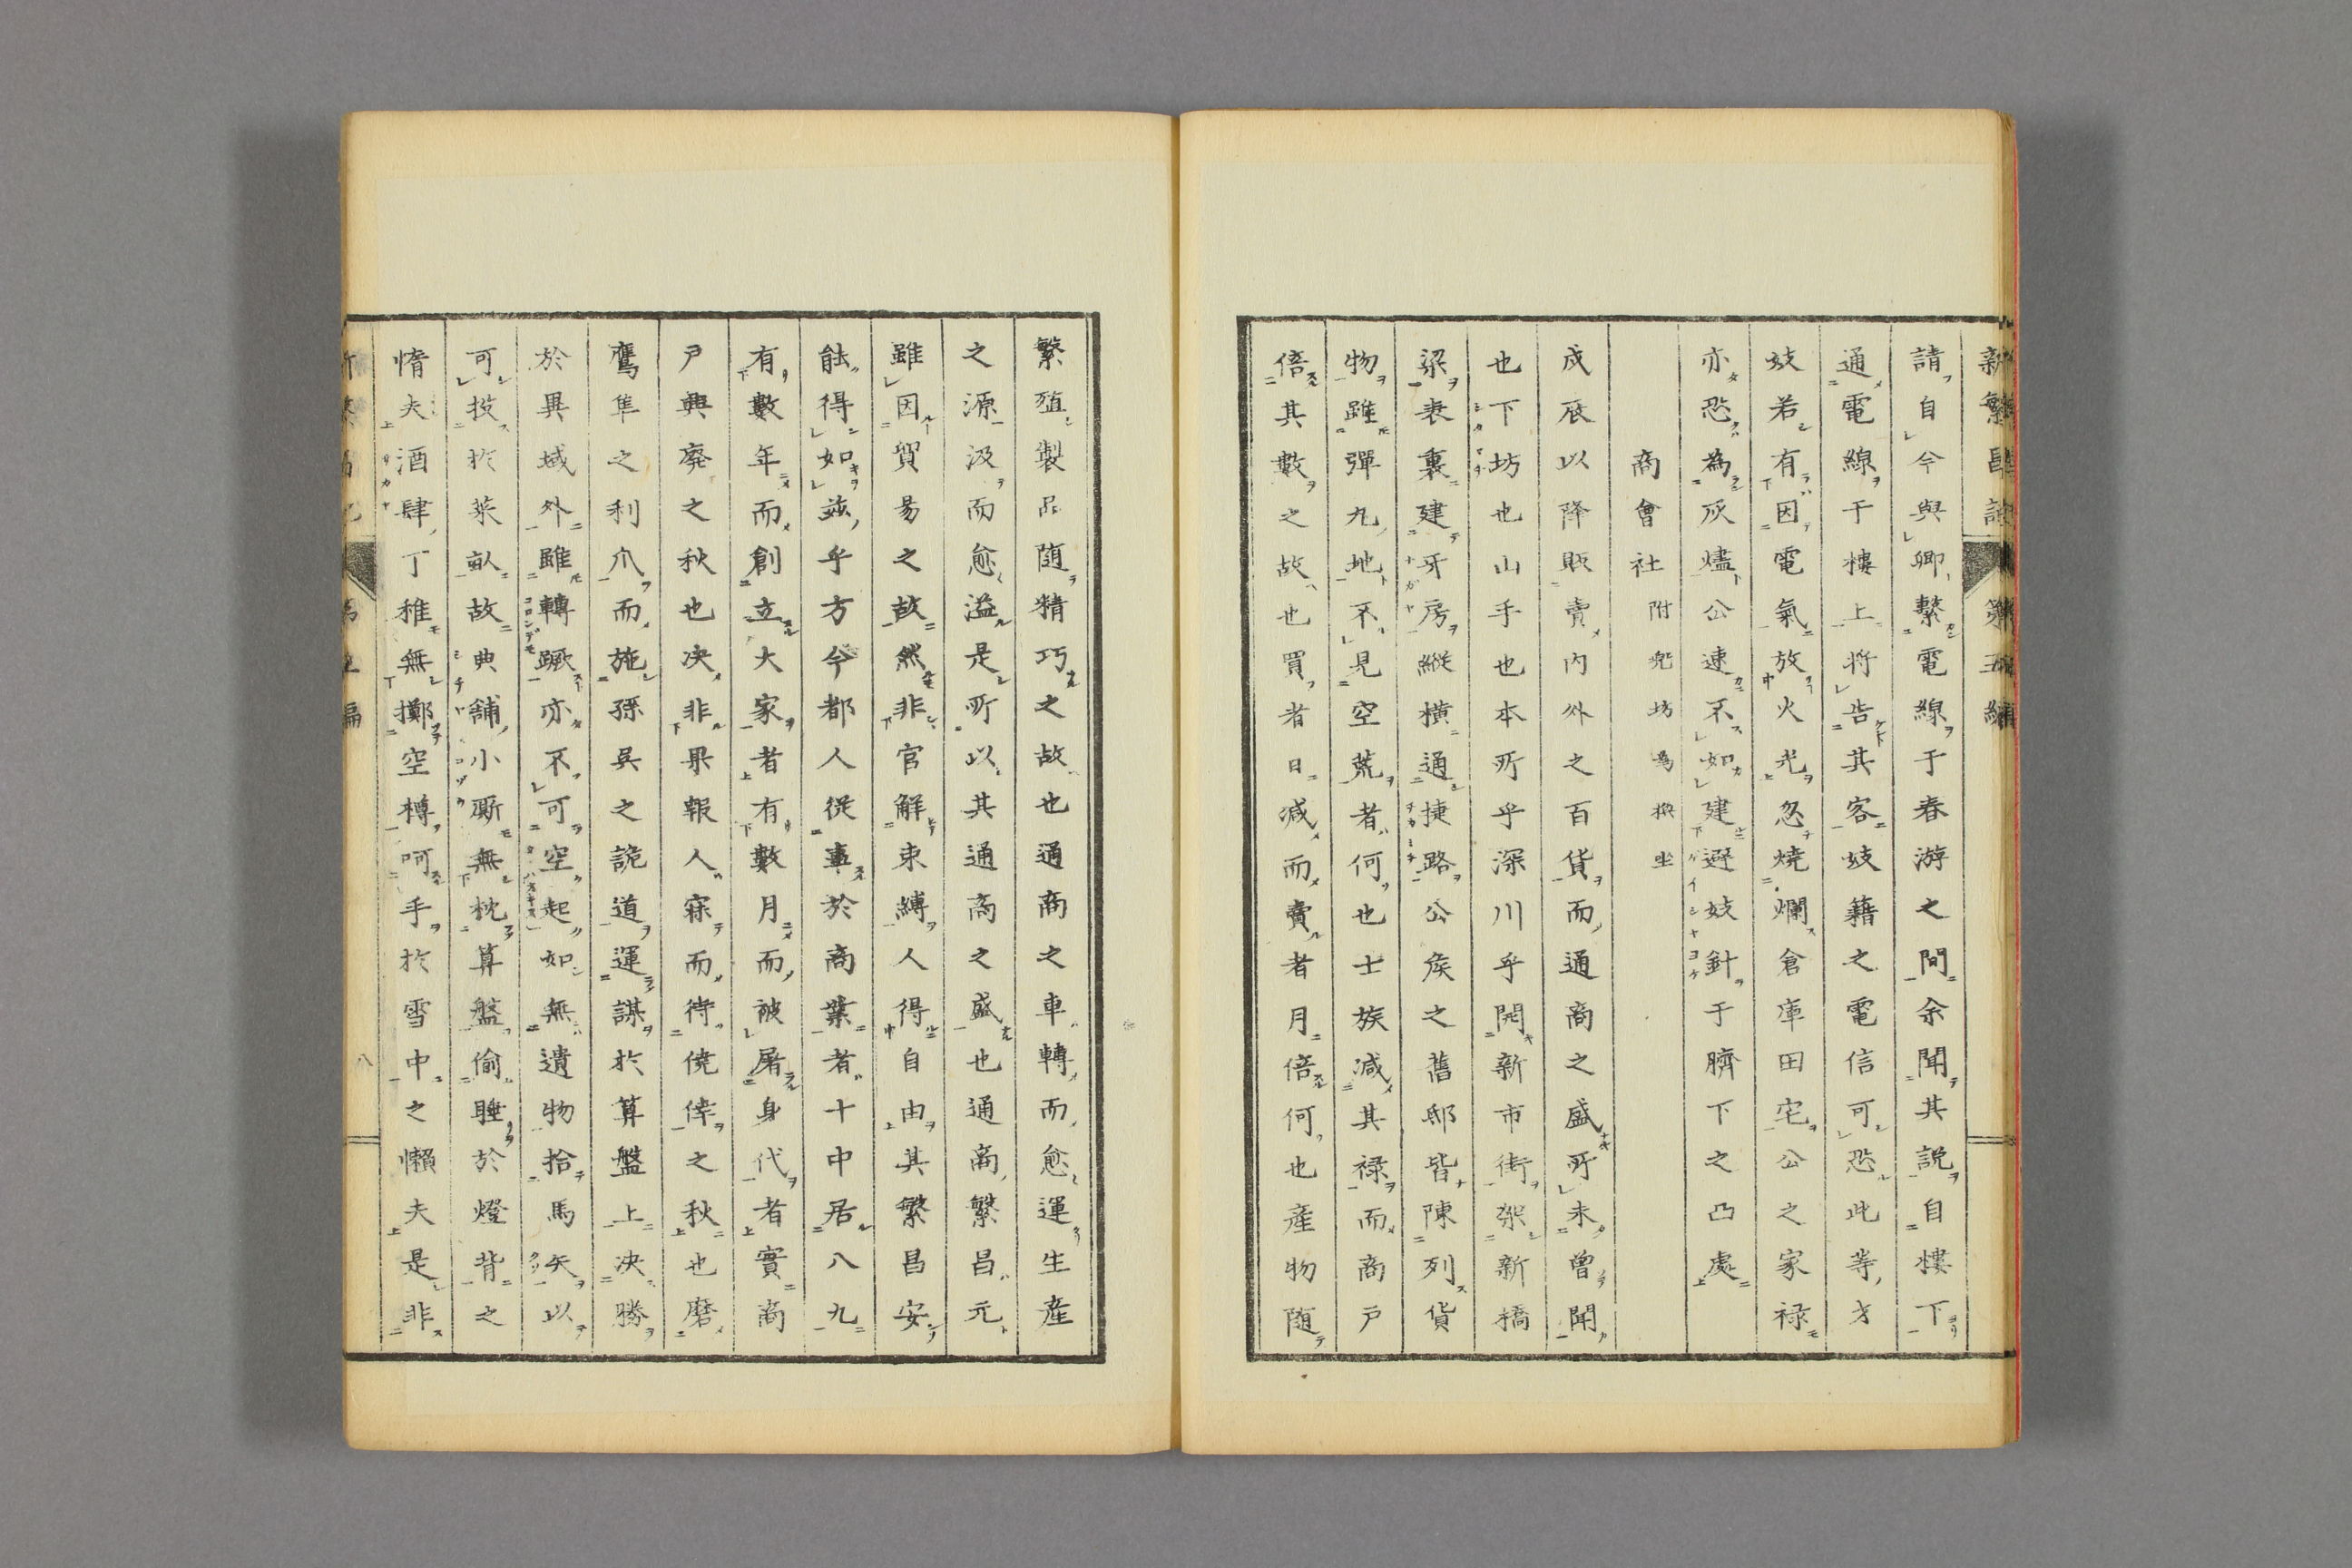 請自今與卿繫電線于春游之間余聞其説自樓下
通電線于樓上將告其客妓藉之電信可恐此等才
妓若有因電氣放火光忽燒爛倉庫田宅公之家禄
亦恐為灰燼公速不如建避妓針于臍下之凸處
商會社附兜坊為換坐
戌辰以降販賣内外之百貨而通商之盛所未曾聞
也下坊也山手也本所乎深川乎開新市街架新橋
梁表裏建牙房縦横通捷路公矦之舊邸皆陳列貨
物雖彈丸地不見空荒者何也士族減其禄而商戸
倍其數之故也買者日減而賣者月倍何也産物随
繁殖製品随精巧之故也通商之車轉而愈運生産
之源汲而愈溢是所以其通商之盛也通商繁昌元
雖因貿易之故然非官解束縛人得自由其繁昌安
能得如茲乎方今都人從事於商業者十中居八九
有數年而創立大家者有數月而被屠身代者實商
戸興廢之秋也决非果報人寐而待僥倖之秋也磨
鷹隼之利爪而施孫呉之詭道運謀於算盤上决勝
於異域外雖轉蹶亦不可空起如無遺物拾馬矢以
可投於菜畝故典舗小厮無枕算盤偷睡於燈背之
惰夫酒肆丁稚無擲空樽呵手於雪中之懶夫是非
八